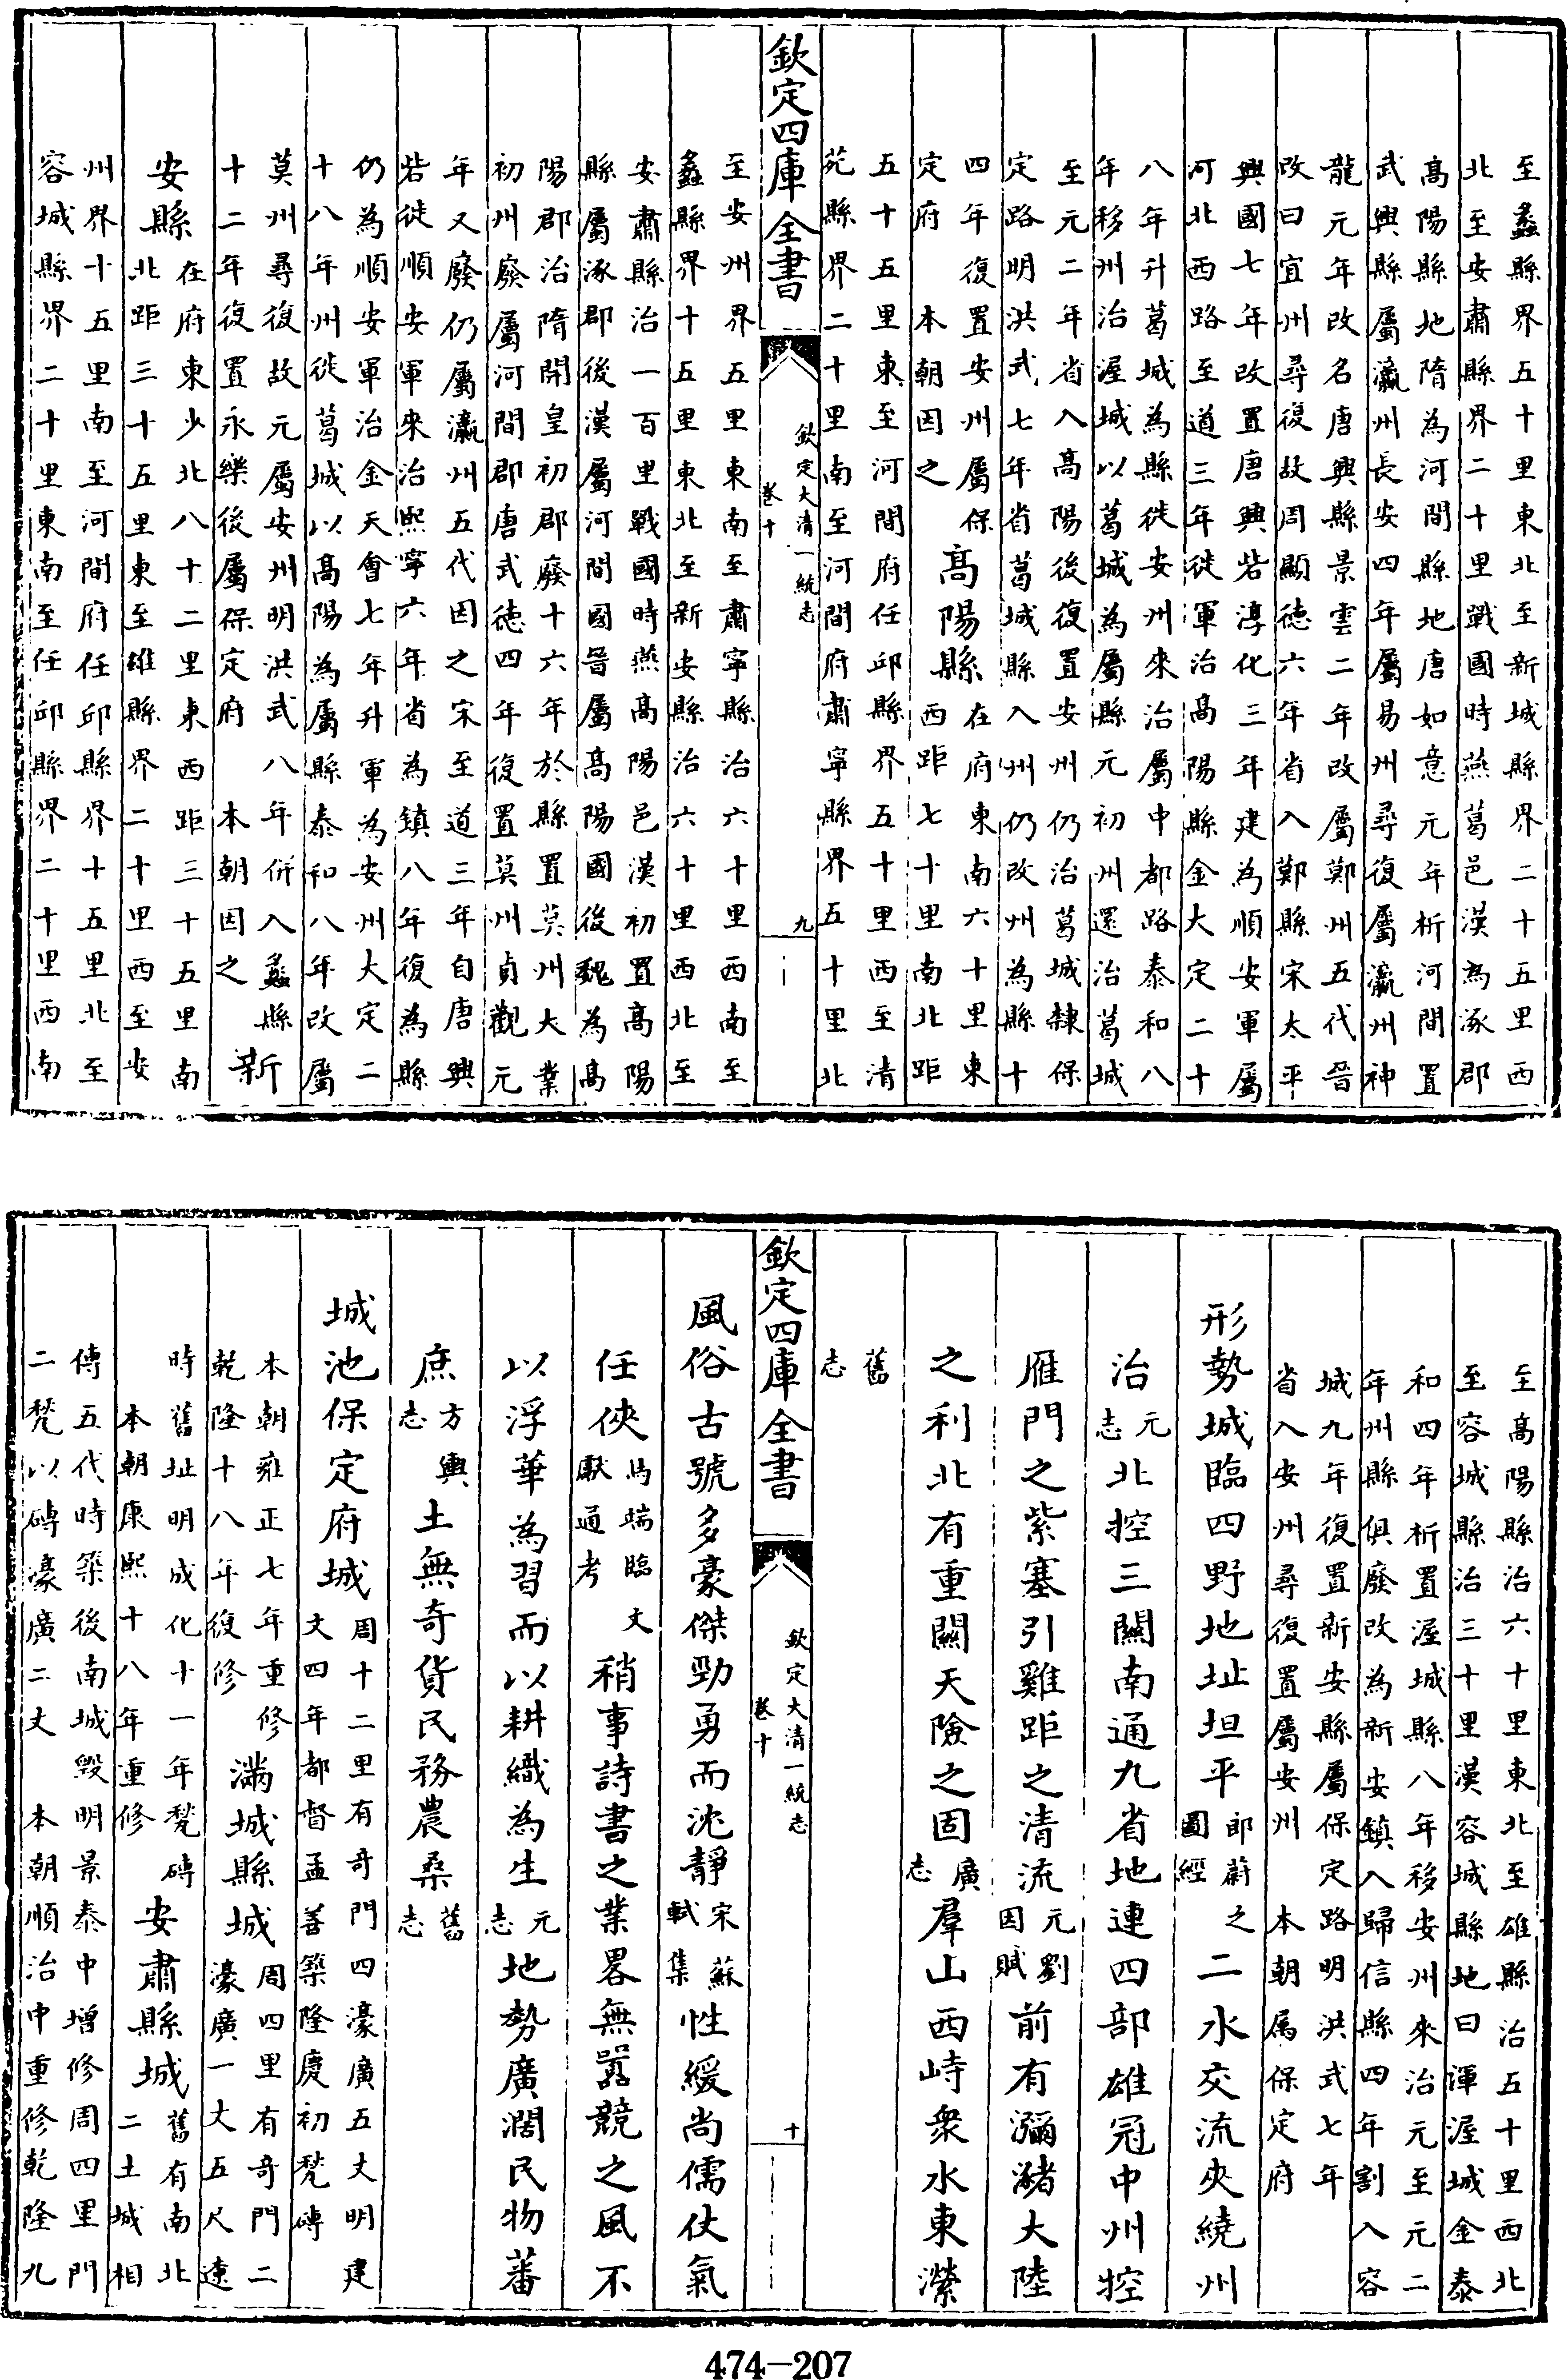 至蠡縣界五十里東北至新城縣界二十五里西
北至安肅縣界二十里戰國時燕葛邑漢為涿郡
高陽縣地隋為河間縣地唐如意元年析河間置
武興縣屬瀛州長安四年屬易州尋復屬瀛州神
龍元年改名唐興縣景雲二年改屬鄭州五代晉
改曰宜州尋復故周顯德六年省入鄭縣宋太平
興國七年改置唐興砦淳化三年建為順安軍屬
河北西路至道三年徙軍治高陽縣金大定二十
八年升葛城為縣徙安州來治屬中都路泰和八
年移州治渥城以葛城為屬縣元初州還治葛城
至元二年省入高陽後復置安州仍治葛城隸保
定路明洪武七年省葛城縣入州仍改州為縣十
四年復置安州屬保
定府 本朝因之
高陽縣
在府東南六十里東
西距七十里南北距
五十五里東至河間府任邱縣界五十里西至清
苑縣界二十里南至河間府肅寧縣界五十里北
欽定四庫全書
欽定大清一統志
卷十
九
至安州界五里東南至肅寧縣治六十里西南至
蠡縣界十五里東北至新安縣治六十里西北至
安肅縣治一百里戰國時燕高陽邑漢初置高陽
縣屬涿郡後漢屬河間國晉屬高陽國後魏為高
陽郡治隋開皇初郡廢十六年於縣置莫州大業
初州廢屬河間郡唐武德四年復置莫州貞觀元
年又廢仍屬瀛州五代因之宋至道三年自唐興
砦徙順安軍來治熙寧六年省為鎮八年復為縣
仍為順安軍治金天會七年升軍為安州大定二
十八年州徙葛城以高陽為屬縣泰和八年改屬
莫州尋復故元屬安州明洪武八年併入蠡縣
十二年復置永樂後屬保定府 本朝因之
新
安縣
在府東少北八十二里東西距三十五里南
北距三十五里東至雄縣界二十里西至安
州界十五里南至河間府任邱縣界十五里北至
容城縣界二十里東南至任邱縣界二十里西南
至高陽縣治六十里東北至雄縣治五十里西北
至容城縣治三十里漢容城縣地曰渾渥城金泰
和四年析置渥城縣八年移安州來治元至元二
年州縣俱廢改為新安鎮入歸信縣四年割入容
城九年復置新安縣屬保定路明洪武七年
省入安州尋復置屬安州 本朝屬保定府
形勢城臨四野地址坦平
郎蔚之
圖經
二水交流夾繞州
治
元
志
北控三關南通九省地連四部雄冠中州控
雁門之紫塞引雞距之清流
元劉
因賦
前有瀰瀦大陸
之利北有重關天險之固
廣
志
羣山西峙衆水東瀠
舊
志
欽定四庫全書
欽定大清一統志
卷十
十
風俗古號多豪傑勁勇而沈靜
宋蘇
軾集
性緩尚儒仗氣
任俠
馬端臨文
獻通考
稍事詩書之業畧無嚣競之風不
以浮華為習而以耕織為生
元
志
地勢廣濶民物蕃
庶
方輿
志
土無奇貨民務農桑
舊
志
城池保定府城
周十二里有奇門四濠廣五丈明建
文四年都督孟善築隆慶初甃磚
本朝雍正七年重修
乾隆十八年復修
滿城縣城
周四里有奇門二
濠廣一丈五尺遠
時舊址明成化十一年甃磚
本朝康熙十八年重修
安肅縣城
舊有南北
二土城相
傳五代時築後南城毀明景泰中增修周四里門
二甃以磚濠廣二丈 本朝順治中重修乾隆九
474-207